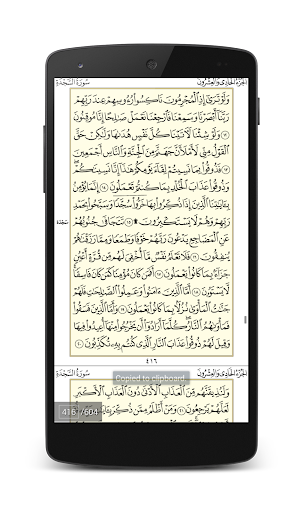 سُورَةُ السَّجْدَةِ
الجُزْءُ الحَادِي وَالعِشْرُونَ
وَلَوْ تَرَىٰٓ إِذِ ٱلْمُجْرِمُونَ نَاكِسُوا۟ رُءُوسِهِمْ عِندَ رَبِّهِمْ
رَبَّنَآ أَبْصَرْنَا وَسَمِعْنَا فَٱرْجِعْنَا نَعْمَلْ صَٰلِحًا إِنَّا مُوقِنُونَ
١٢ وَلَوْ شِئْنَا لَءَاتَيْنَا كُلَّ نَفْسٍ هُدَىٰهَا وَلَٰكِنْ حَقَّ
ٱلْقَوْلُ مِنِّي لَأَمْلَأَنَّ جَهَنَّمَ مِنَ ٱلْجِنَّةِ وَٱلنَّاسِ أَجْمَعِينَ
١٣ فَذُوقُوا۟ بِمَا نَسِيتُمْ لِقَآءَ يَوْمِكُمْ هَٰذَآ إِنَّا نَسِينَٰكُمْ
وَذُوقُوا۟ عَذَابَ ٱلْخُلْدِ بِمَا كُنتُمْ تَعْمَلُونَ ١٤ إِنَّمَا يُؤْمِنُ
بِـَٔايَٰتِنَا ٱلَّذِينَ إِذَا ذُكِّرُوا۟ بِهَا خَرُّوا۟ سُجَّدًا وَسَبَّحُوا۟ بِحَمْدِ
رَبِّهِمْ وَهُمْ لَا يَسْتَكْبِرُونَ ۩ ١٥ تَتَجَافَىٰ جُنُوبُهُمْ
سَجْدَة
عَنِ ٱلْمَضَاجِعِ يَدْعُونَ رَبَّهُمْ خَوْفًا وَطَمَعًا وَمِمَّا رَزَقْنَٰهُمْ
يُنفِقُونَ ١٦ فَلَا تَعْلَمُ نَفْسٌ مَّآ أُخْفِيَ لَهُم مِّن قُرَّةِ أَعْيُنٍ
جَزَآءًۢ بِمَا كَانُوا۟ يَعْمَلُونَ ١٧ أَفَمَن كَانَ مُؤْمِنًا كَمَن كَانَ فَاسِقًا
لَّا يَسْتَوُۥنَ ١٨ أَمَّا ٱلَّذِينَ ءَامَنُوا۟ وَعَمِلُوا۟ ٱلصَّٰلِحَٰتِ فَلَهُمْ
جَنَّٰتُ ٱلْمَأْوَىٰ نُزُلًۢا بِمَا كَانُوا۟ يَعْمَلُونَ ١٩ وَأَمَّا ٱلَّذِينَ فَسَقُوا۟
فَمَأْوَىٰهُمُ ٱلنَّارُ كُلَّمَآ أَرَادُوٓا۟ أَن يَخْرُجُوا۟ مِنْهَآ أُعِيدُوا۟ فِيهَا
وَقِيلَ لَهُمْ ذُوقُوا۟ عَذَابَ ٱلنَّارِ ٱلَّذِي كُنتُم بِهِۦ تُكَذِّبُونَ ٢٠
٤١٦
Copied to clipboard
سُورَةُ السَّجْدَةِ
الجُزْءُ الحَادِي وَالعِشْرُونَ
وَلَنُذِيقَنَّهُم مِّنَ ٱلْعَذَابِ ٱلْأَدْنَىٰ دُونَ ٱلْعَذَابِ ٱلْأَكْبَرِ
لَعَلَّهُمْ يَرْجِعُونَ ٢١ وَمَنْ أَظْلَمُ مِمَّن ذُكِّرَ بِـَٔايَٰتِ
416 /604